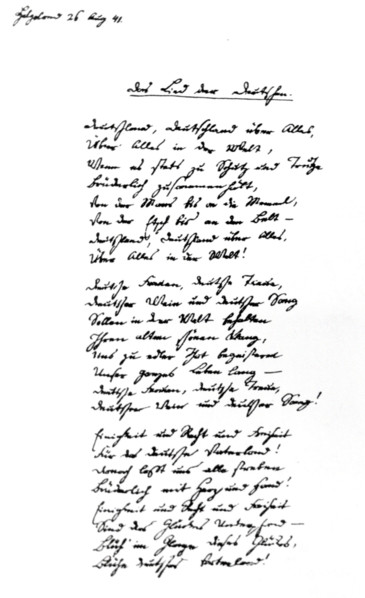 Helgoland 26 Aug 41.
Das Lied der Deutschen.
Deutschland, Deutschland über Alles,
Über Alles in der Welt,
Wenn es stets zu Schutz und Trutze
Brüderlich zusammenhält,
Von der Maas bis an die Memel,
Von der Etsch bis an den Belt –
Deutschland, Deutschland über Alles,
Über Alles in der Welt!
Deutsche Frauen, deutsche Treue,
Deutscher Wein und deutscher Sang
Sollen in der Welt behalten
Ihren alten schönen Klang,
Uns zu edler That begeistern
Unser ganzes Leben lang –
Deutsche Frauen, deutsche Treue,
Deutscher Wein und deutscher Sang!
Einigkeit und Recht und Freiheit
Für das deutsche Vaterland!
Danach laßt uns alle streben
Brüderlich mit Herz und Hand!
Einigkeit und Recht und Freiheit
Sind des Glückes Unterpfand –
Blüh im Glanze dieses Glückes,
Blühe deutsches Vaterland!